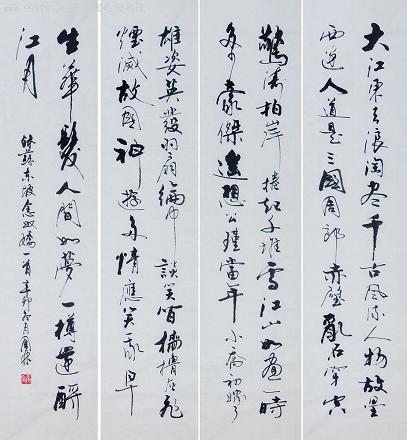 大江東去浪淘盡千古風流人物故壘
西邊人道是三國周郎赤壁亂石穿空
驚濤拍岸捲起千堆雪江山如畫一時
多少豪傑遙想公瑾當年小喬初嫁了
雄姿英發羽扇綸巾談笑間檣櫓灰飛
煙滅故國神遊多情應笑我早
生華髮人間如夢一樽還酹
江月
蘇東坡念奴嬌一首辛卯冬月